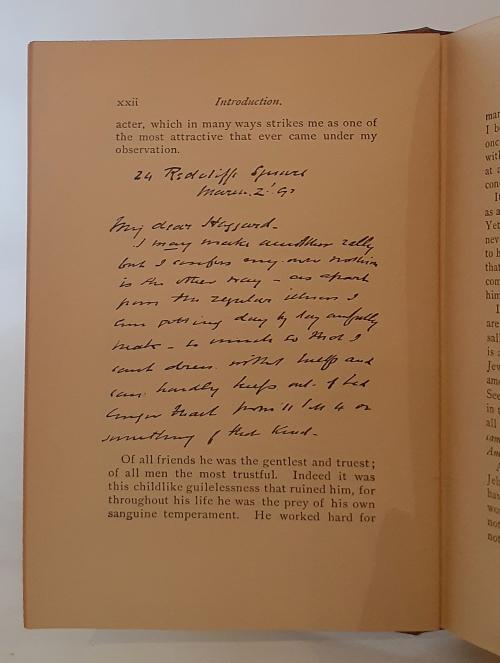 xxii Introduction.
acter, which in many ways strikes me as one of
the most attractive that ever came under my
observation.
24 Redcliffe Square
March 2
My dear Haggard.
I may make another rally
but I confess my own notion
is the other way – as apart
from the regular illness I
am getting day by day awfully
weak – so much so that I
can't dress without help and
can hardly keep out of bed
longer than from 11 till 4 or
something of that kind –
Of all friends he was the gentlest and truest;
of all men the most trustful. Indeed it was
this childlike guilelessness that ruined him, for
throughout his life he was the prey of his own
sanguine temperament. He worked hard for